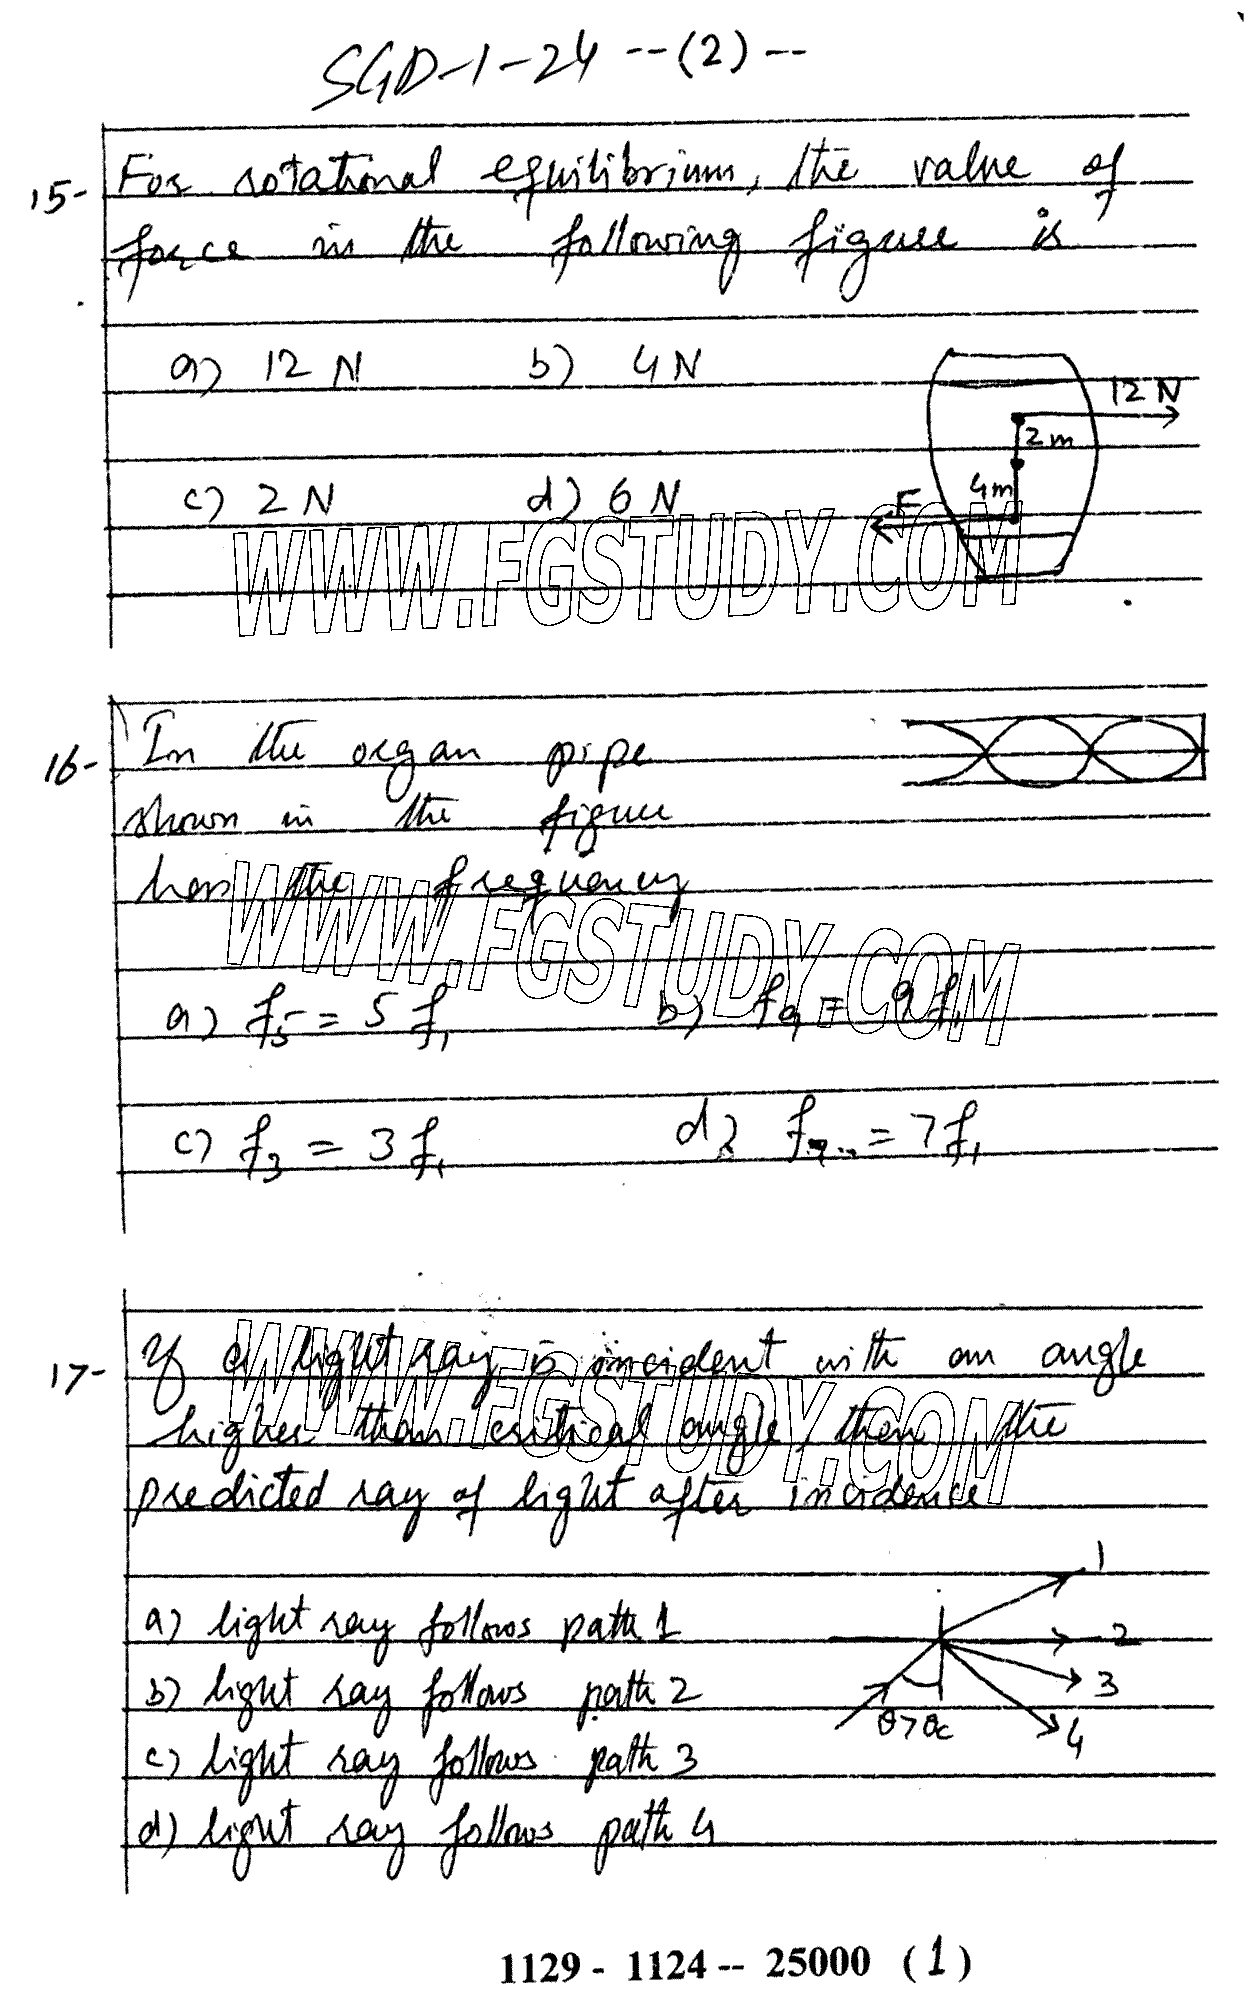 SGD-1-24 --(2)--
15- For rotational equilibrium, the value of
force in the following figure is
a) 12 N b) 4 N
12 N
2m
c) 2 N d) 6 N
F 4m
WWW.FGSTUDY.COM
16- In the organ pipe
shown in the figure
has the frequency
WWW.FGSTUDY.COM
a) f5 = 5 f1 b) f9 = 9 f1
c) f3 = 3 f1 d) f7 = 7 f1
17- If a light ray is incident with an angle
WWW.FGSTUDY.COM
higher than critical angle, then the
predicted ray of light after incidence
1
a) light ray follows path 1
2
b) light ray follows path 2
3
θ>θc 4
c) light ray follows path 3
d) light ray follows path 4
1129 - 1124 -- 25000 (1)